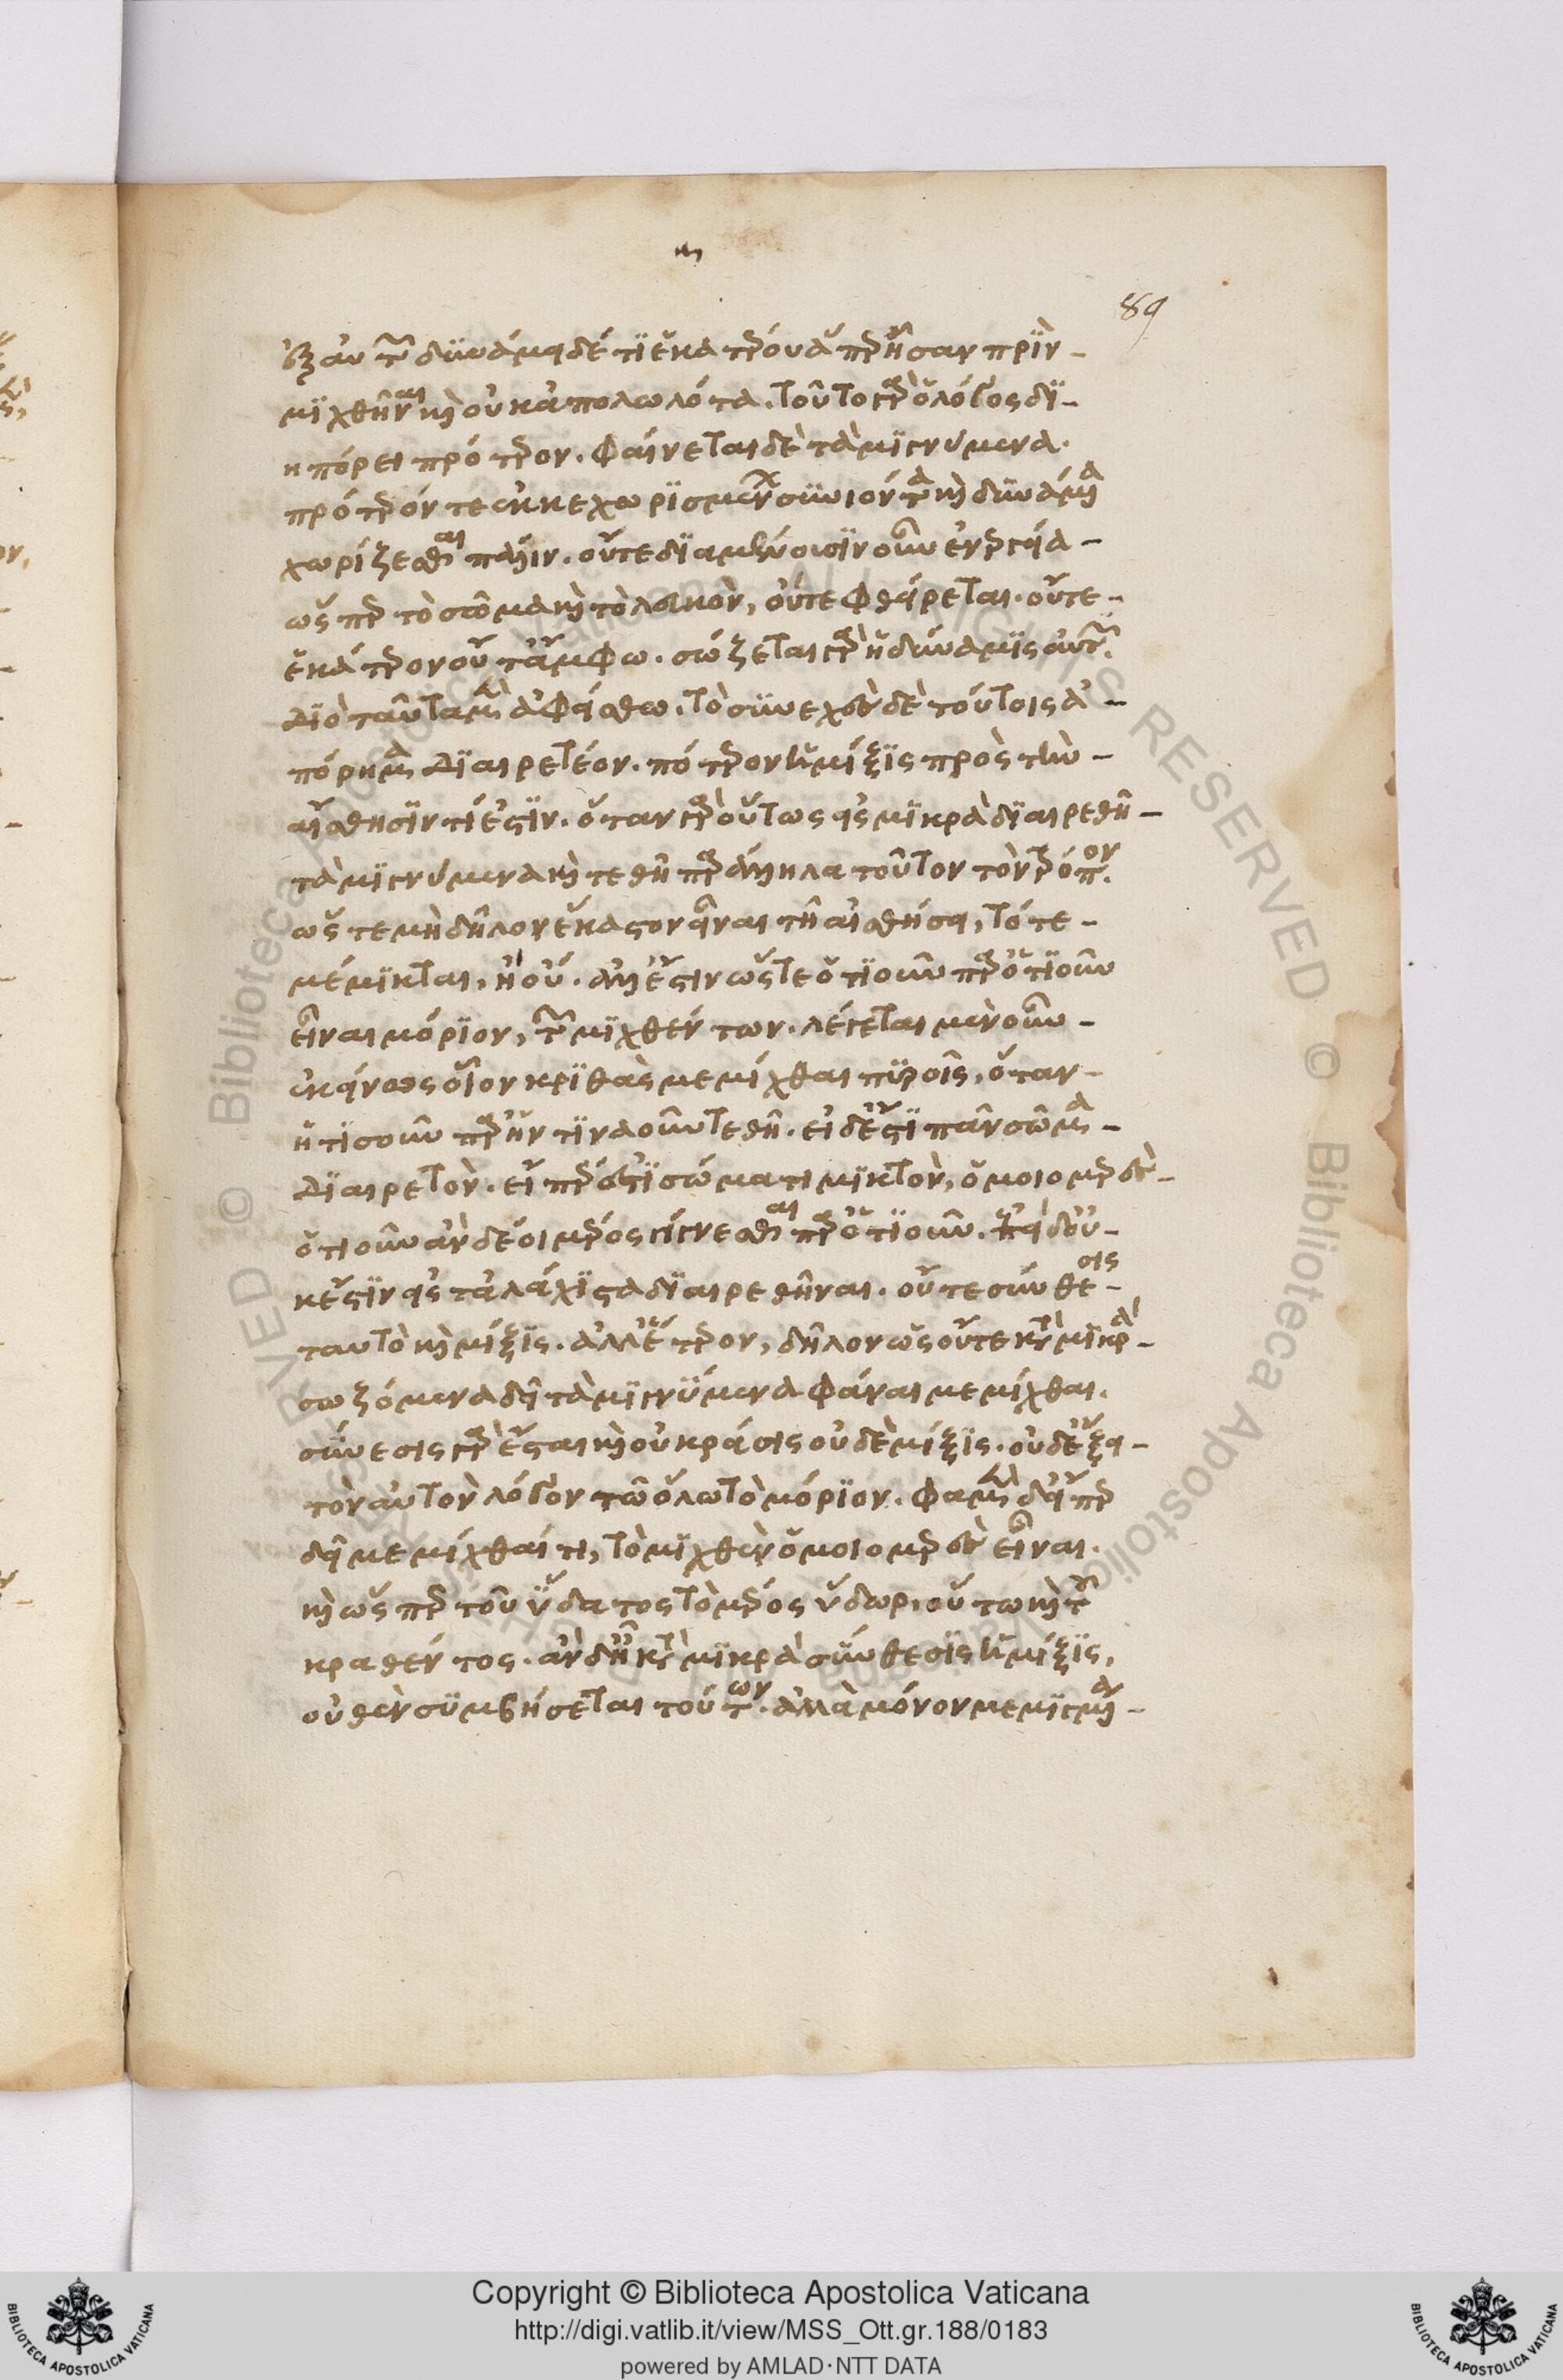 ἐξ αὐτῶν δυνάμει δέ τι ἑκάτερον ἅπερ ἦσαν πρὶν
μιχθῆναι καὶ οὐκ ἀπολωλότα. τοῦτο γὰρ ὁ λόγος δι-
ηπόρει πρότερον. φαίνεται δὲ τὰ μιγνύμενα.
πρότερόν τε ἐκ κεχωρισμένων συνιόντα καὶ δυνάμενα
χωρίζεσθαι πάλιν. οὔτε διαμένουσιν οὖν ἐνεργεία
ὥσπερ τὸ σῶμα καὶ τὸ λευκὸν, οὔτε φθείρεται. οὔτε
ἑκάτερον οὔτ' ἄμφω. σώζεται γὰρ ἡ δύναμις αὐτῶν.
Διὸ ταῦτα μὲν ἀφείσθω. τὸ συνεχὲς δὲ τούτοις ἀ-
πόρημα διαιρετέον. πότερον ἡ μίξις πρὸς τὴν
αἴσθησίν τί ἐστιν. ὅταν γὰρ οὕτως εἰς μικρὰ διαιρεθῆ
τὰ μιγνύμενα καὶ τεθῆ παρ' ἄλληλα τοῦτον τὸν τρόπον.
ὥστε μὴ δῆλον ἕκαστον εἶναι τῆ αἰσθήσει, τότε
μέμικται, ἢ οὔ. ἀλλ' ἔστιν ὥστε ὁτιοῦν παρ' ὁτιοῦν
εἶναι μόριον, τῶν μιχθέντων. λέγεται μὲν οὖν
ἐκείνως οἷον κριθὰς μεμίχθαι πυροῖς, ὅταν
ἡτισοῦν παρ' ἥν τιναοῦν τεθῆ. εἰ δ' ἔστι πᾶν σῶμα
διαιρετὸν. εἴπερ ἐστὶ σώματι μικτὸν, ὁμοιομερὲς
ὁτιοῦν ἂν δέοι μέρος γίγνεσθαι παρ' ὁτιοῦν. ἐπεὶ δ' οὐ-
κ ἔστιν εἰς τἀλάχιστα διαιρεθῆναι. οὔτε σύνθεσις
ταυτὸ καὶ μίξις. ἀλλ' ἕτερον, δῆλον ὡς οὔτε κατὰ μικρὰ
σωζόμενα δεῖ τὰ μιγνύμενα φάναι μεμίχθαι.
σύνεσις γὰρ ἔσται καὶ οὐ κράσις οὐδὲ μίξις. οὐδ' ἕξει
τὸν αὐτὸν λόγον τῶ ὅλω τὸ μόριον. φαμὲν δ' εἴπερ
δεῖ μεμίχθαί τι, τὸ μιχθὲν ὁμοιομερὲς εἶναι.
καὶ ὥσπερ τοῦ ὕδατος τὸ μέρος ὕδωρ, οὕτω καὶ τοῦ
κραθέντος. ἂν δ' ἦ κατὰ μικρὰ σύνθεσις ἡ μίξις,
οὐθὲν συμβήσεται τούτων. ἀλλὰ μόνον μεμιγμένα
89
Copyright © Biblioteca Apostolica Vaticana
http://digi.vatlib.it/view/MSS_Ott.gr.188/0183
powered by AMLAD·NTT DATA